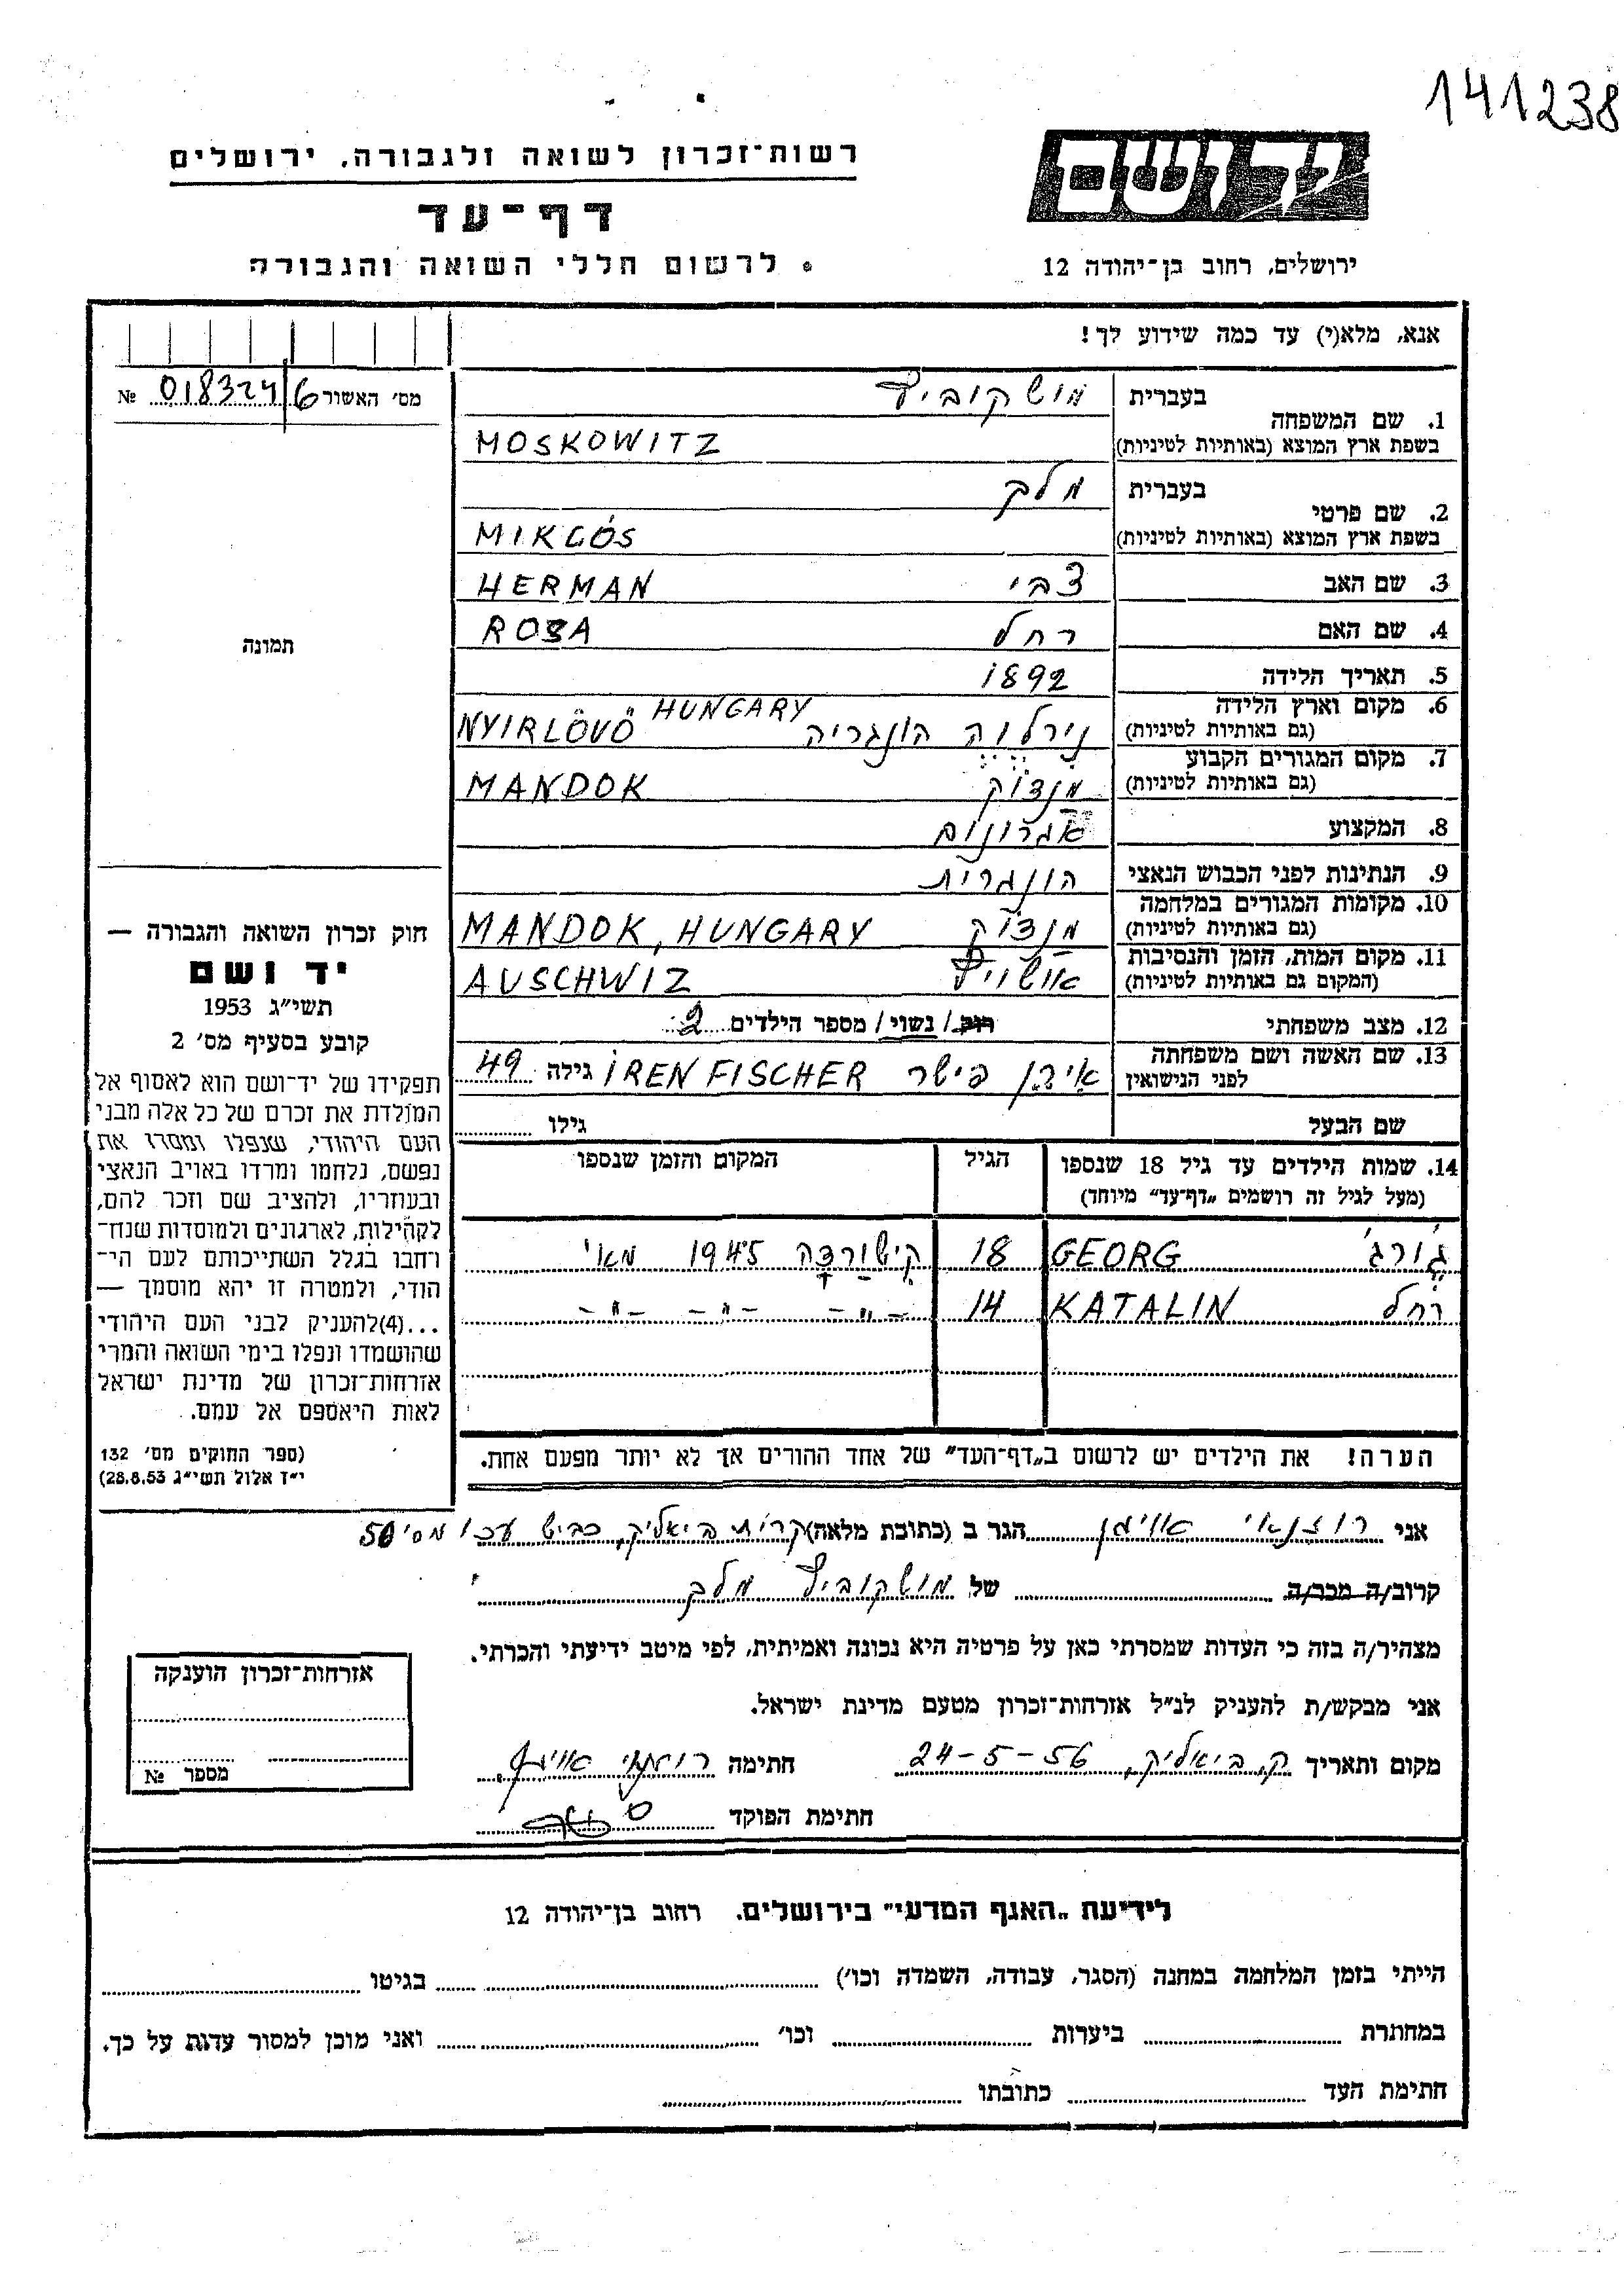 141238
רשות־זכרון לשואה ולגבורה, ירושלים
יד ושם
דף־עד
ירושלים, רחוב בן־יהודה 12
לרשום חללי השואה והגבורה
אנא, מלא(י) עד כמה שידוע לך!
מס׳ האשור 6 018324 №
בעברית מושקוביץ
1. שם המשפחה
בשפת ארץ המוצא (באותיות לטיניות) MOSKOWITZ
בעברית מלך
2. שם פרטי
בשפת ארץ המוצא (באותיות לטיניות) MIKLÓS
3. שם האב צבי HERMAN
4. שם האם רחל ROSA
תמונה
5. תאריך הלידה 1892
6. מקום וארץ הלידה
(גם באותיות לטיניות) נירלוה הונגריה NYIRLÖVÖ HUNGARY
7. מקום המגורים הקבוע
(גם באותיות לטיניות) מנדוק MANDOK
8. המקצוע אגרונום
9. הנתינות לפני הכבוש הנאצי הונגרית
10. מקומות המגורים במלחמה
(גם באותיות לטיניות) מנדוק MANDOK, HUNGARY
11. מקום המות, הזמן והנסיבות
(המקום גם באותיות לטיניות) אושויץ AUSCHWIZ
12. מצב משפחתי רוק/ נשוי/ מספר הילדים 2
13. שם האשה ושם משפחתה
לפני הנישואין אירן פישר IREN FISCHER גילה 49
שם הבעל גילו
14. שמות הילדים עד גיל 18 שנספו הגיל המקום והזמן שנספו
(מעל לגיל זה רושמים „דף־עד״ מיוחד)
ג׳ורג׳ GEORG 18 קישורדה 1945 מאי
רחל KATALIN 14 -״- -״- -״-
הערה! את הילדים יש לרשום ב„דף־העד״ של אחד ההורים אך לא יותר מפעם אחת.
חוק זכרון השואה והגבורה —
יד ושם
תשי״ג 1953
קובע בסעיף מס׳ 2
תפקידו של יד־ושם הוא לאסוף אל
המולדת את זכרם של כל אלה מבני
העם היהודי, שנפלו ומסרו את
נפשם, נלחמו ומרדו באויב הנאצי
ובעוזריו, ולהציב שם וזכר להם,
לקהילות, לארגונים ולמוסדות שנח־
רחבו בגלל השתייכותם לעם הי־
הודי, ולמטרה זו יהא מוסמך —
...(4)להעניק לבני העם היהודי
שהושמדו ונפלו בימי השואה והמרי
אזרחות־זכרון של מדינת ישראל
לאות היאספם אל עמם.
(ספר החוקים מס׳ 132
י״ז אלול תשי״ג 28.8.53)
אני רוזנאי הגר ב (כתובת מלאה) קרית ביאליק, כביש עכו מס׳ 50
קרוב/ה מכר/ה של מושקוביץ מלך
מצהיר/ה בזה כי העדות שמסרתי כאן על פרטיה היא נכונה ואמיתית, לפי מיטב ידיעתי והכרתי.
אני מבקש/ת להעניק לנ״ל אזרחות־זכרון מטעם מדינת ישראל.
מקום ותאריך ק. ביאליק, 24-5-56 חתימה
חתימת הפוקד
אזרחות־זכרון הוענקה
מספר №
לידיעת „האגף המדעי״ בירושלים. רחוב בן־יהודה 12
הייתי בזמן המלחמה במחנה (הסגר, עבודה, השמדה וכו׳) בגיטו
במחתרת ביערות וכו׳ ואני מוכן למסור עדות על כך.
חתימת העד כתובתו